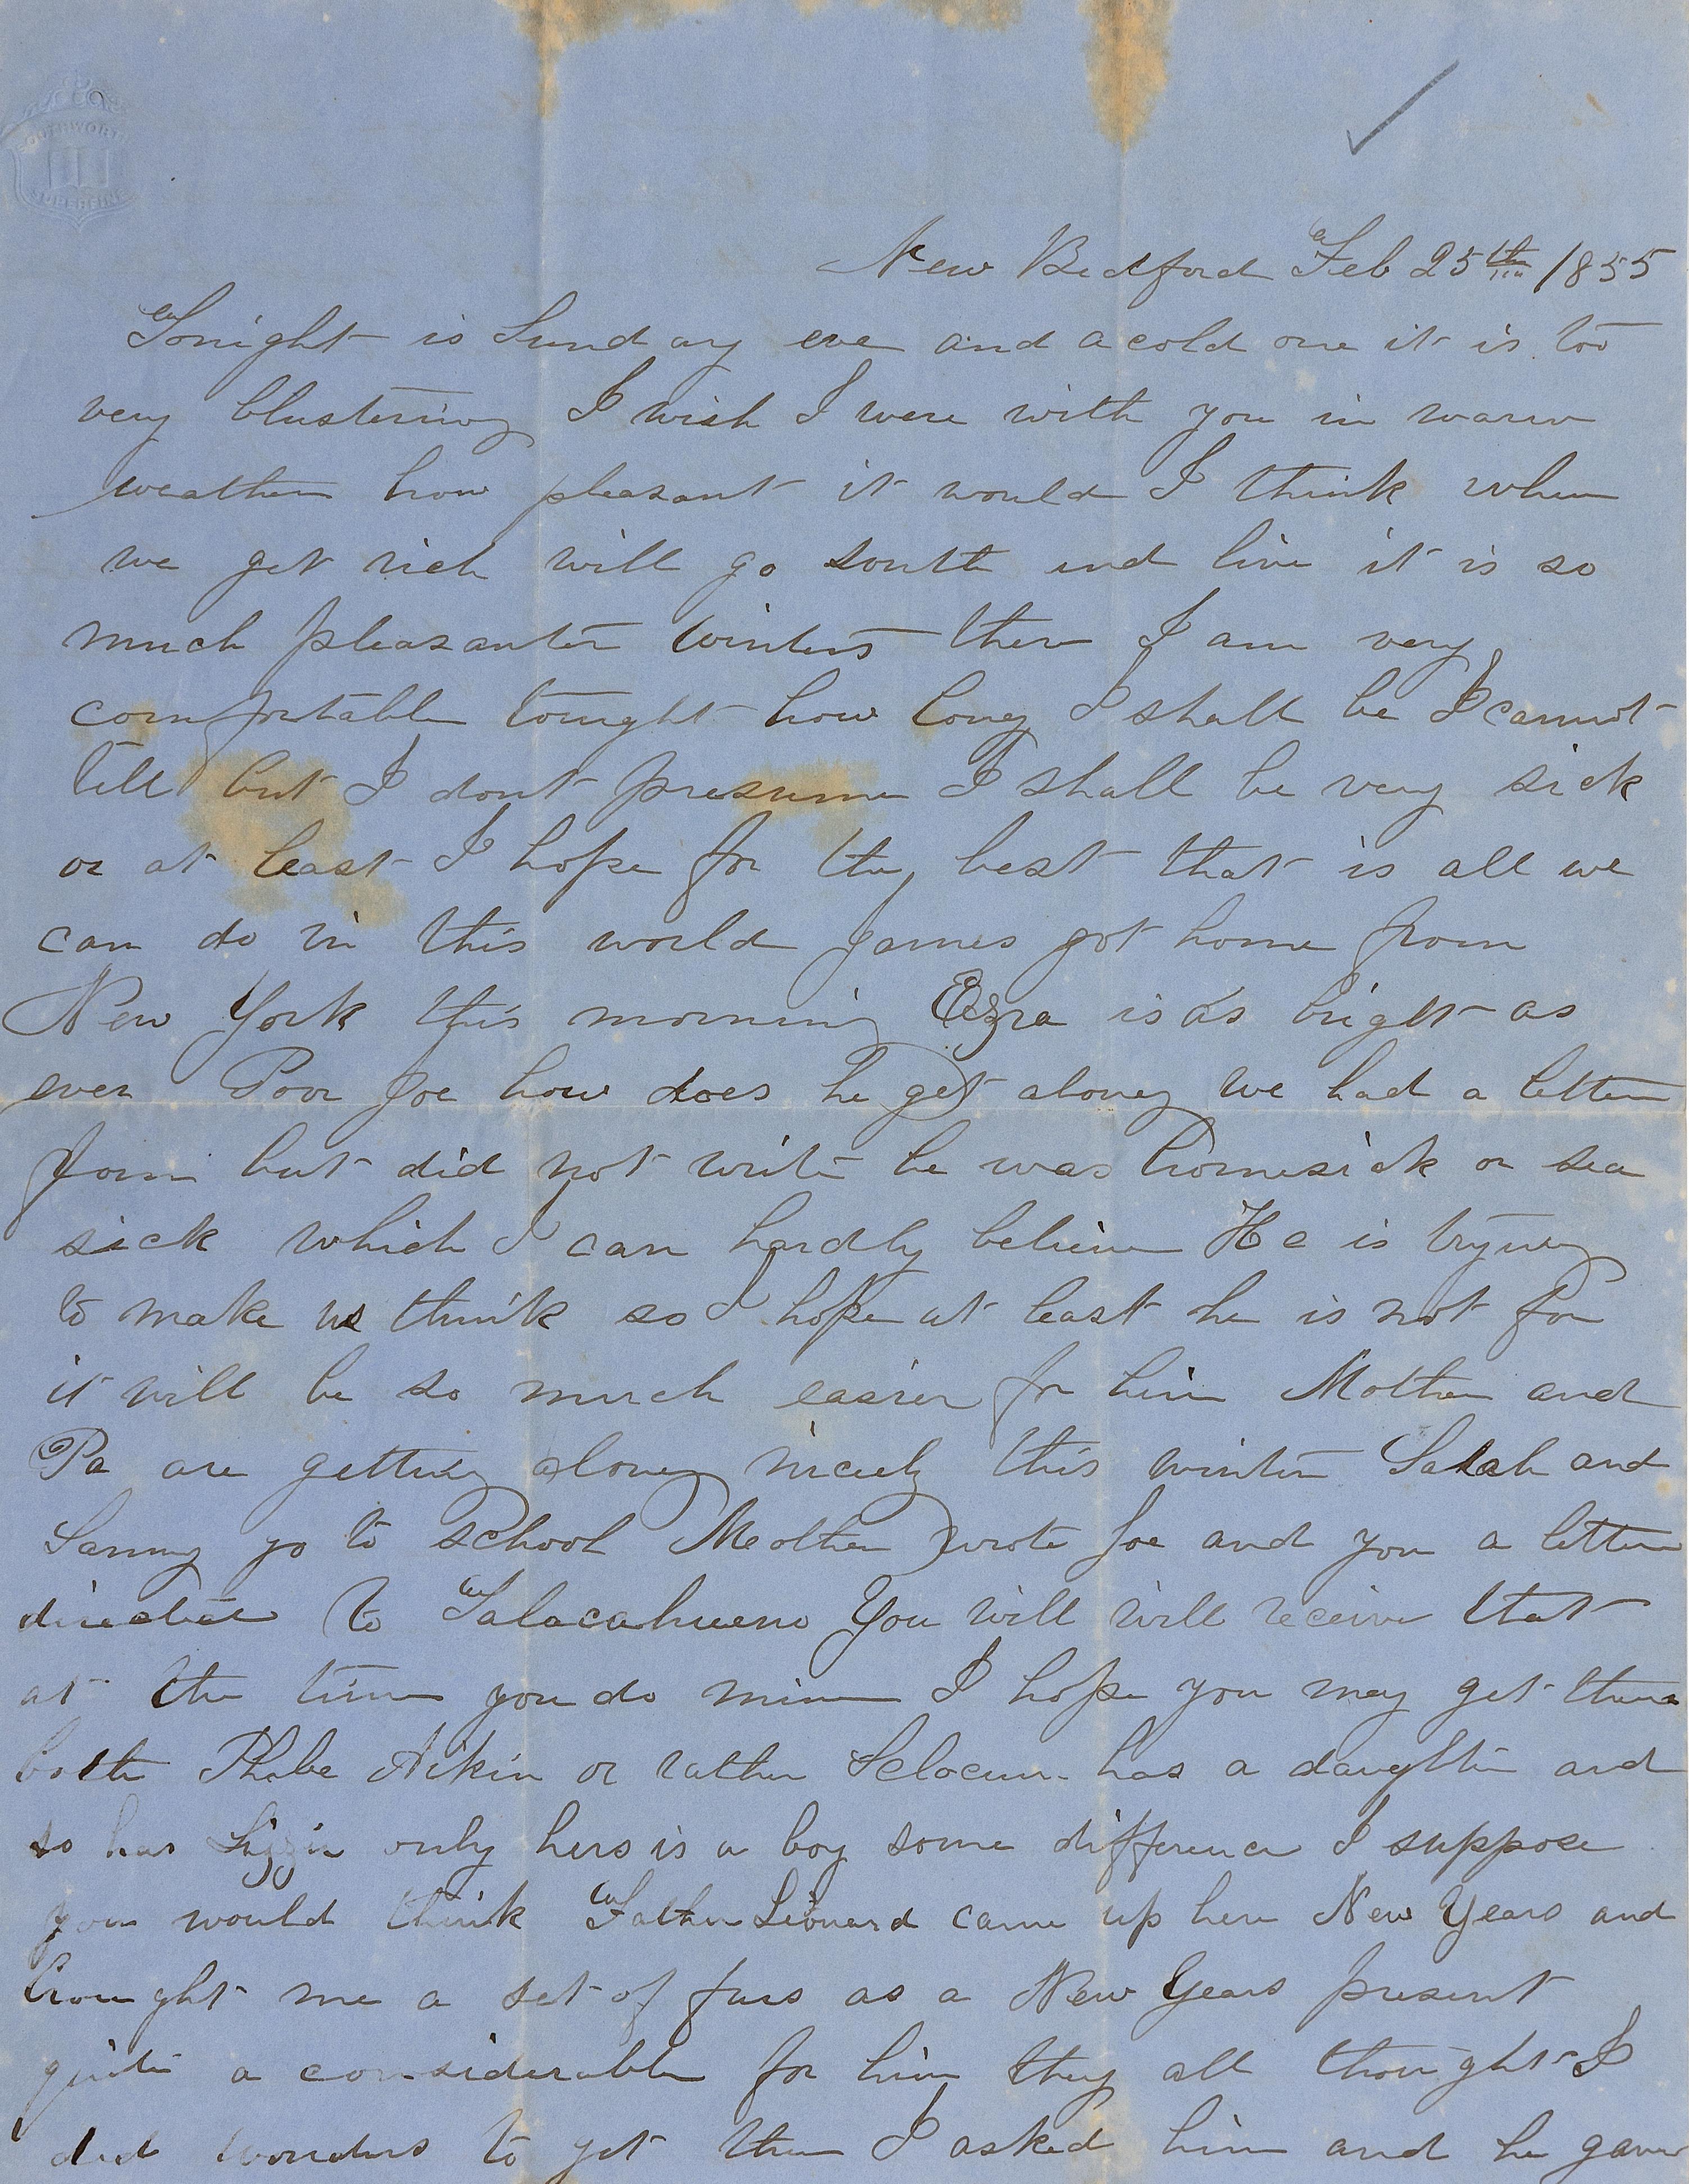 SOUTHWORTH
SUPERFINE
New Bedford Feb 25th 1855
Tonight is Sunday eve and a cold one it is too
very blustering I wish I were with you in warm
weather how pleasant it would I think when
we get rich will go south and live it is so
much pleasanter winters there I am very
comfortable tonight how long I shall be I cannot
tell but I dont presume I shall be very sick
or at least I hope for the best that is all we
can do in this world James got home from
New York this morning Ezra is as bright as
ever Poor Joe how does he get along we had a letter
from but did not write he was homesick or sea
sick which I can hardly believe He is trying
to make us think so I hope at least he is not for
it will be so much easier for him Mother and
Pa are getting along nicely this winter Sarah and
Sammy go to school Mother wrote Joe and you a letter
directed to Talacahueno You will will receive that
at the time you do mine I hope you may get them
both Phebe Aikin or rather Slocum has a daughter and
so has Lizzie only hers is a boy some difference I suppose
you would think Father Leonard came up here New Years and
brought me a set of furs as a New Years present
quite a considerable for him they all thought I
did wonders to get them I asked him and he gave